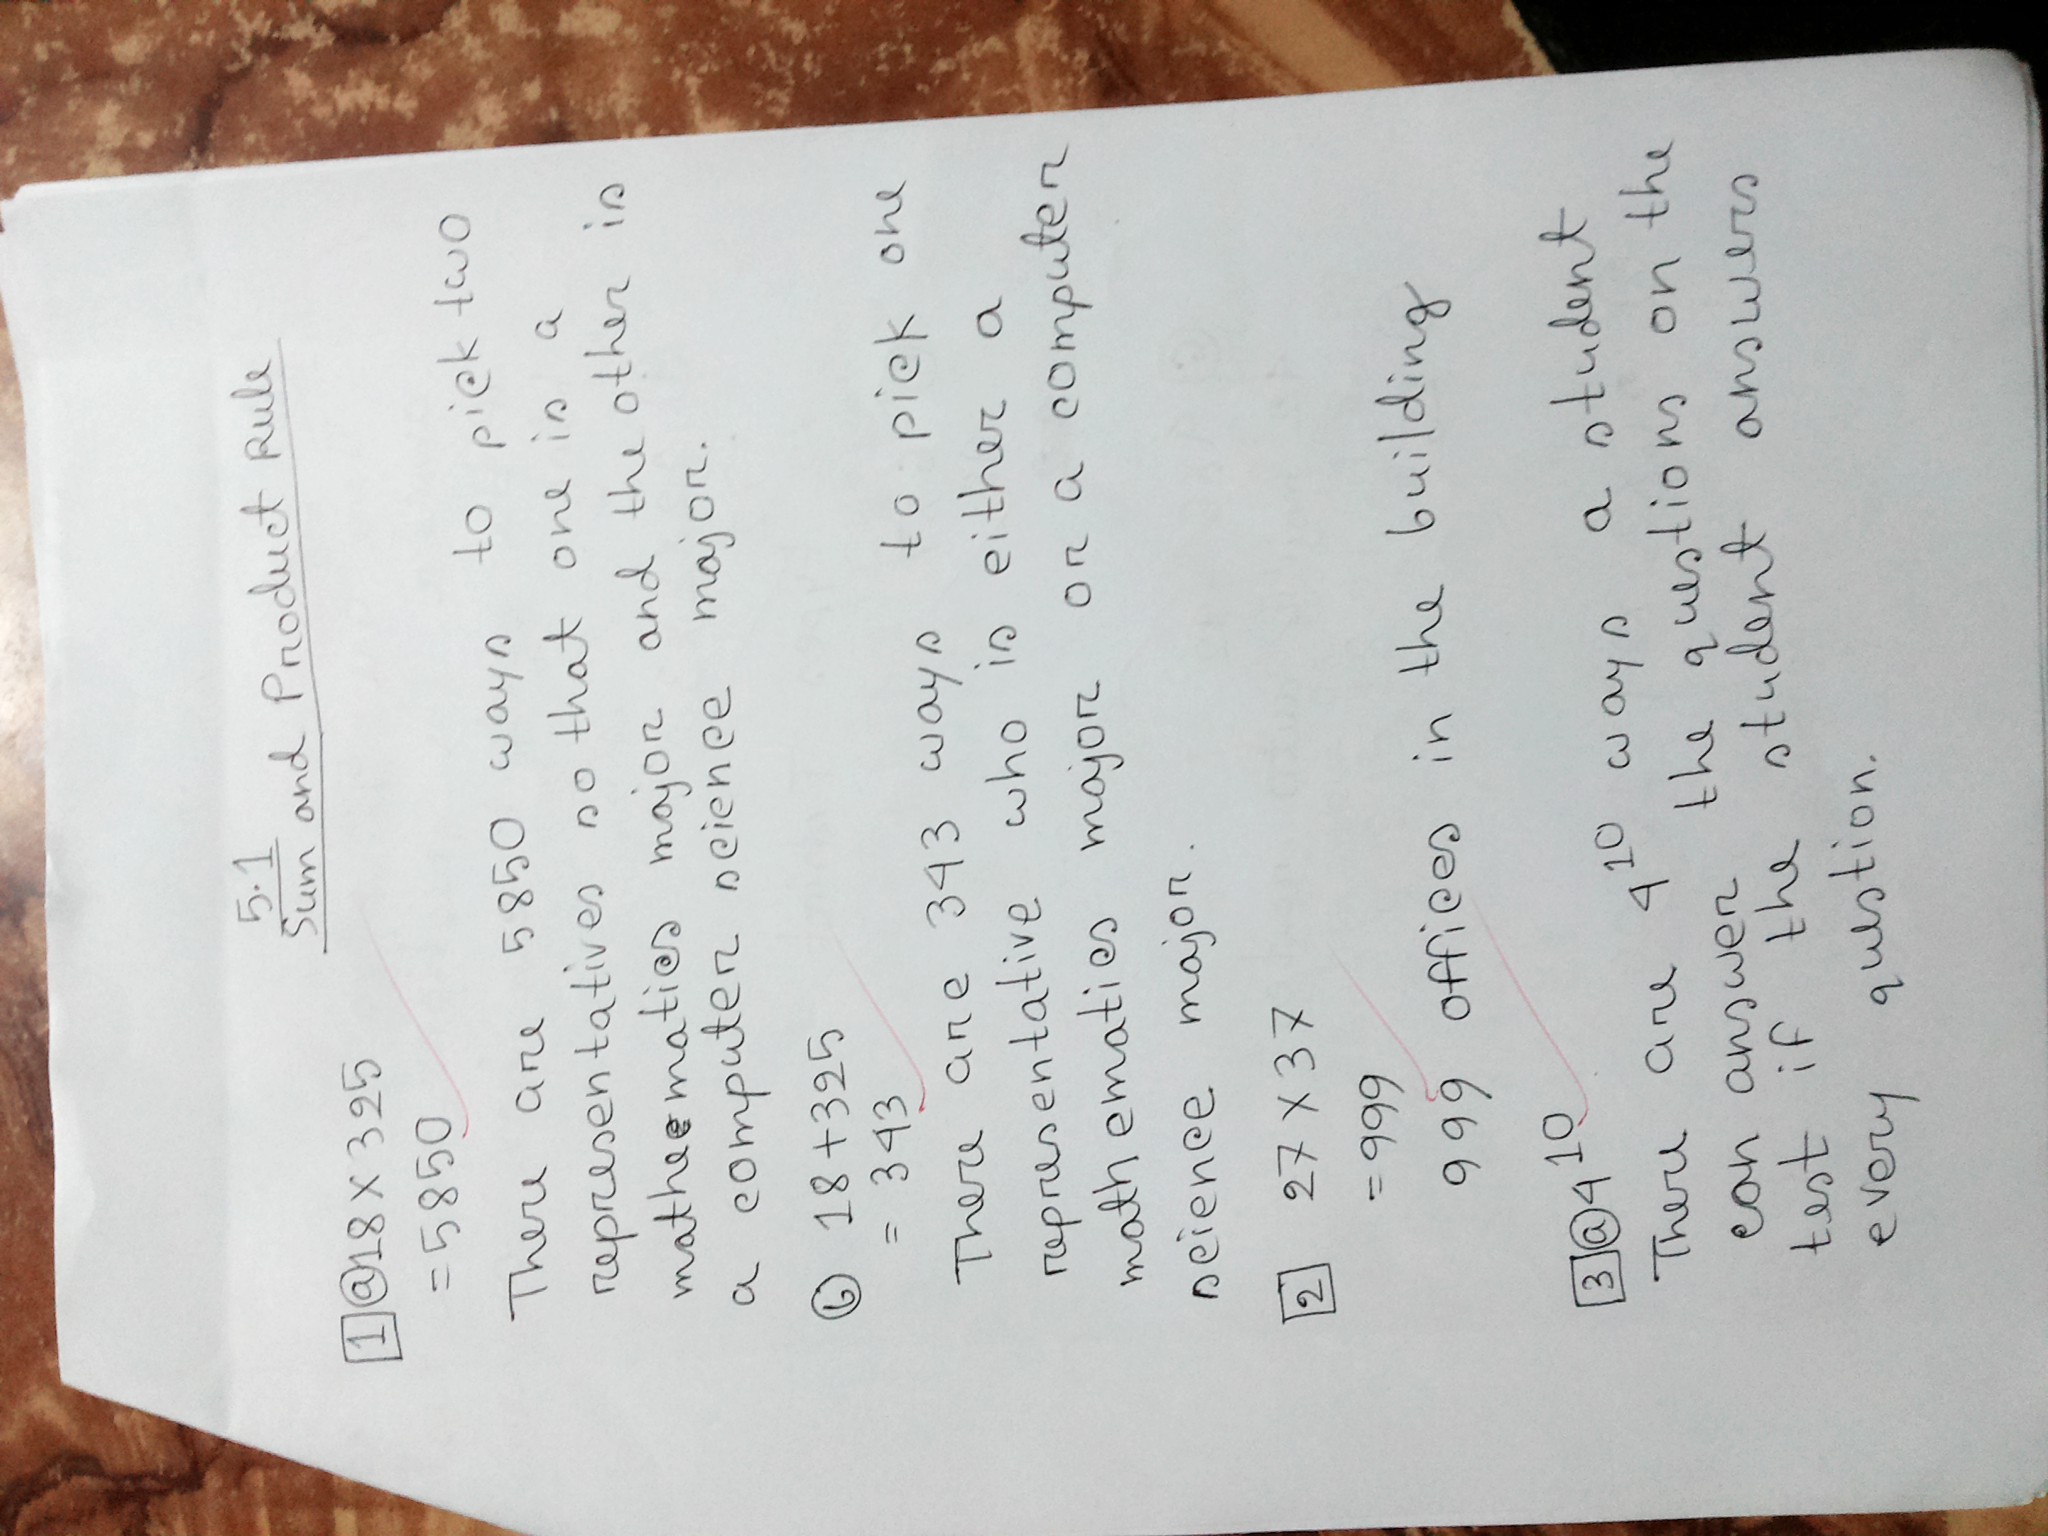 5.1
Sum and Product Rule
1 a 18 × 325
= 5850
There are 5850 ways to pick two
representatives so that one is a
matheematics major and the other is
a computer science major.
b 18+325
= 343
There are 343 ways to pick one
representative who is either a
mathematics major or a computer
science major.
2 27 × 37
= 999
999 offices in the building
3 a 4¹⁰
There are 4¹⁰ ways a student
can answer the questions on the
test if the student answers
every question.